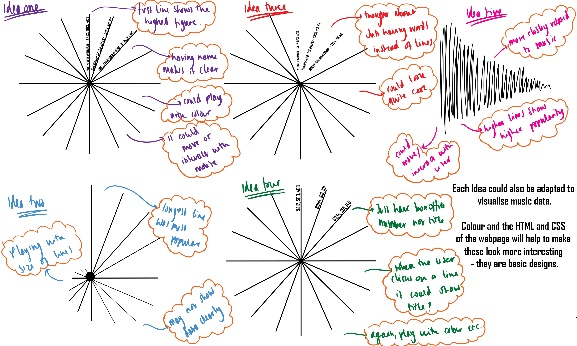 Idea one
first line shows the
highest figure
having name
makes it clear
could play
with colour
it could
move or
interact with
mouse
Idea three
thought about
Just having words
instead of lines
could look
quite cool
Idea five
more closely related
to music
highest lines show
higher popularity
could
move/
interact with
user
Idea two
playing with
size of lines
longest line
was most
popular
may not show
data clearly
Idea four
Just have box office
number not title
when the user
clicks on a line
it could show
title?
again, play with colour etc
Each Idea could also be adapted to
visualise music data.
Colour and the HTML and CSS
of the webpage will help to make
these look more interesting
- they are basic designs.